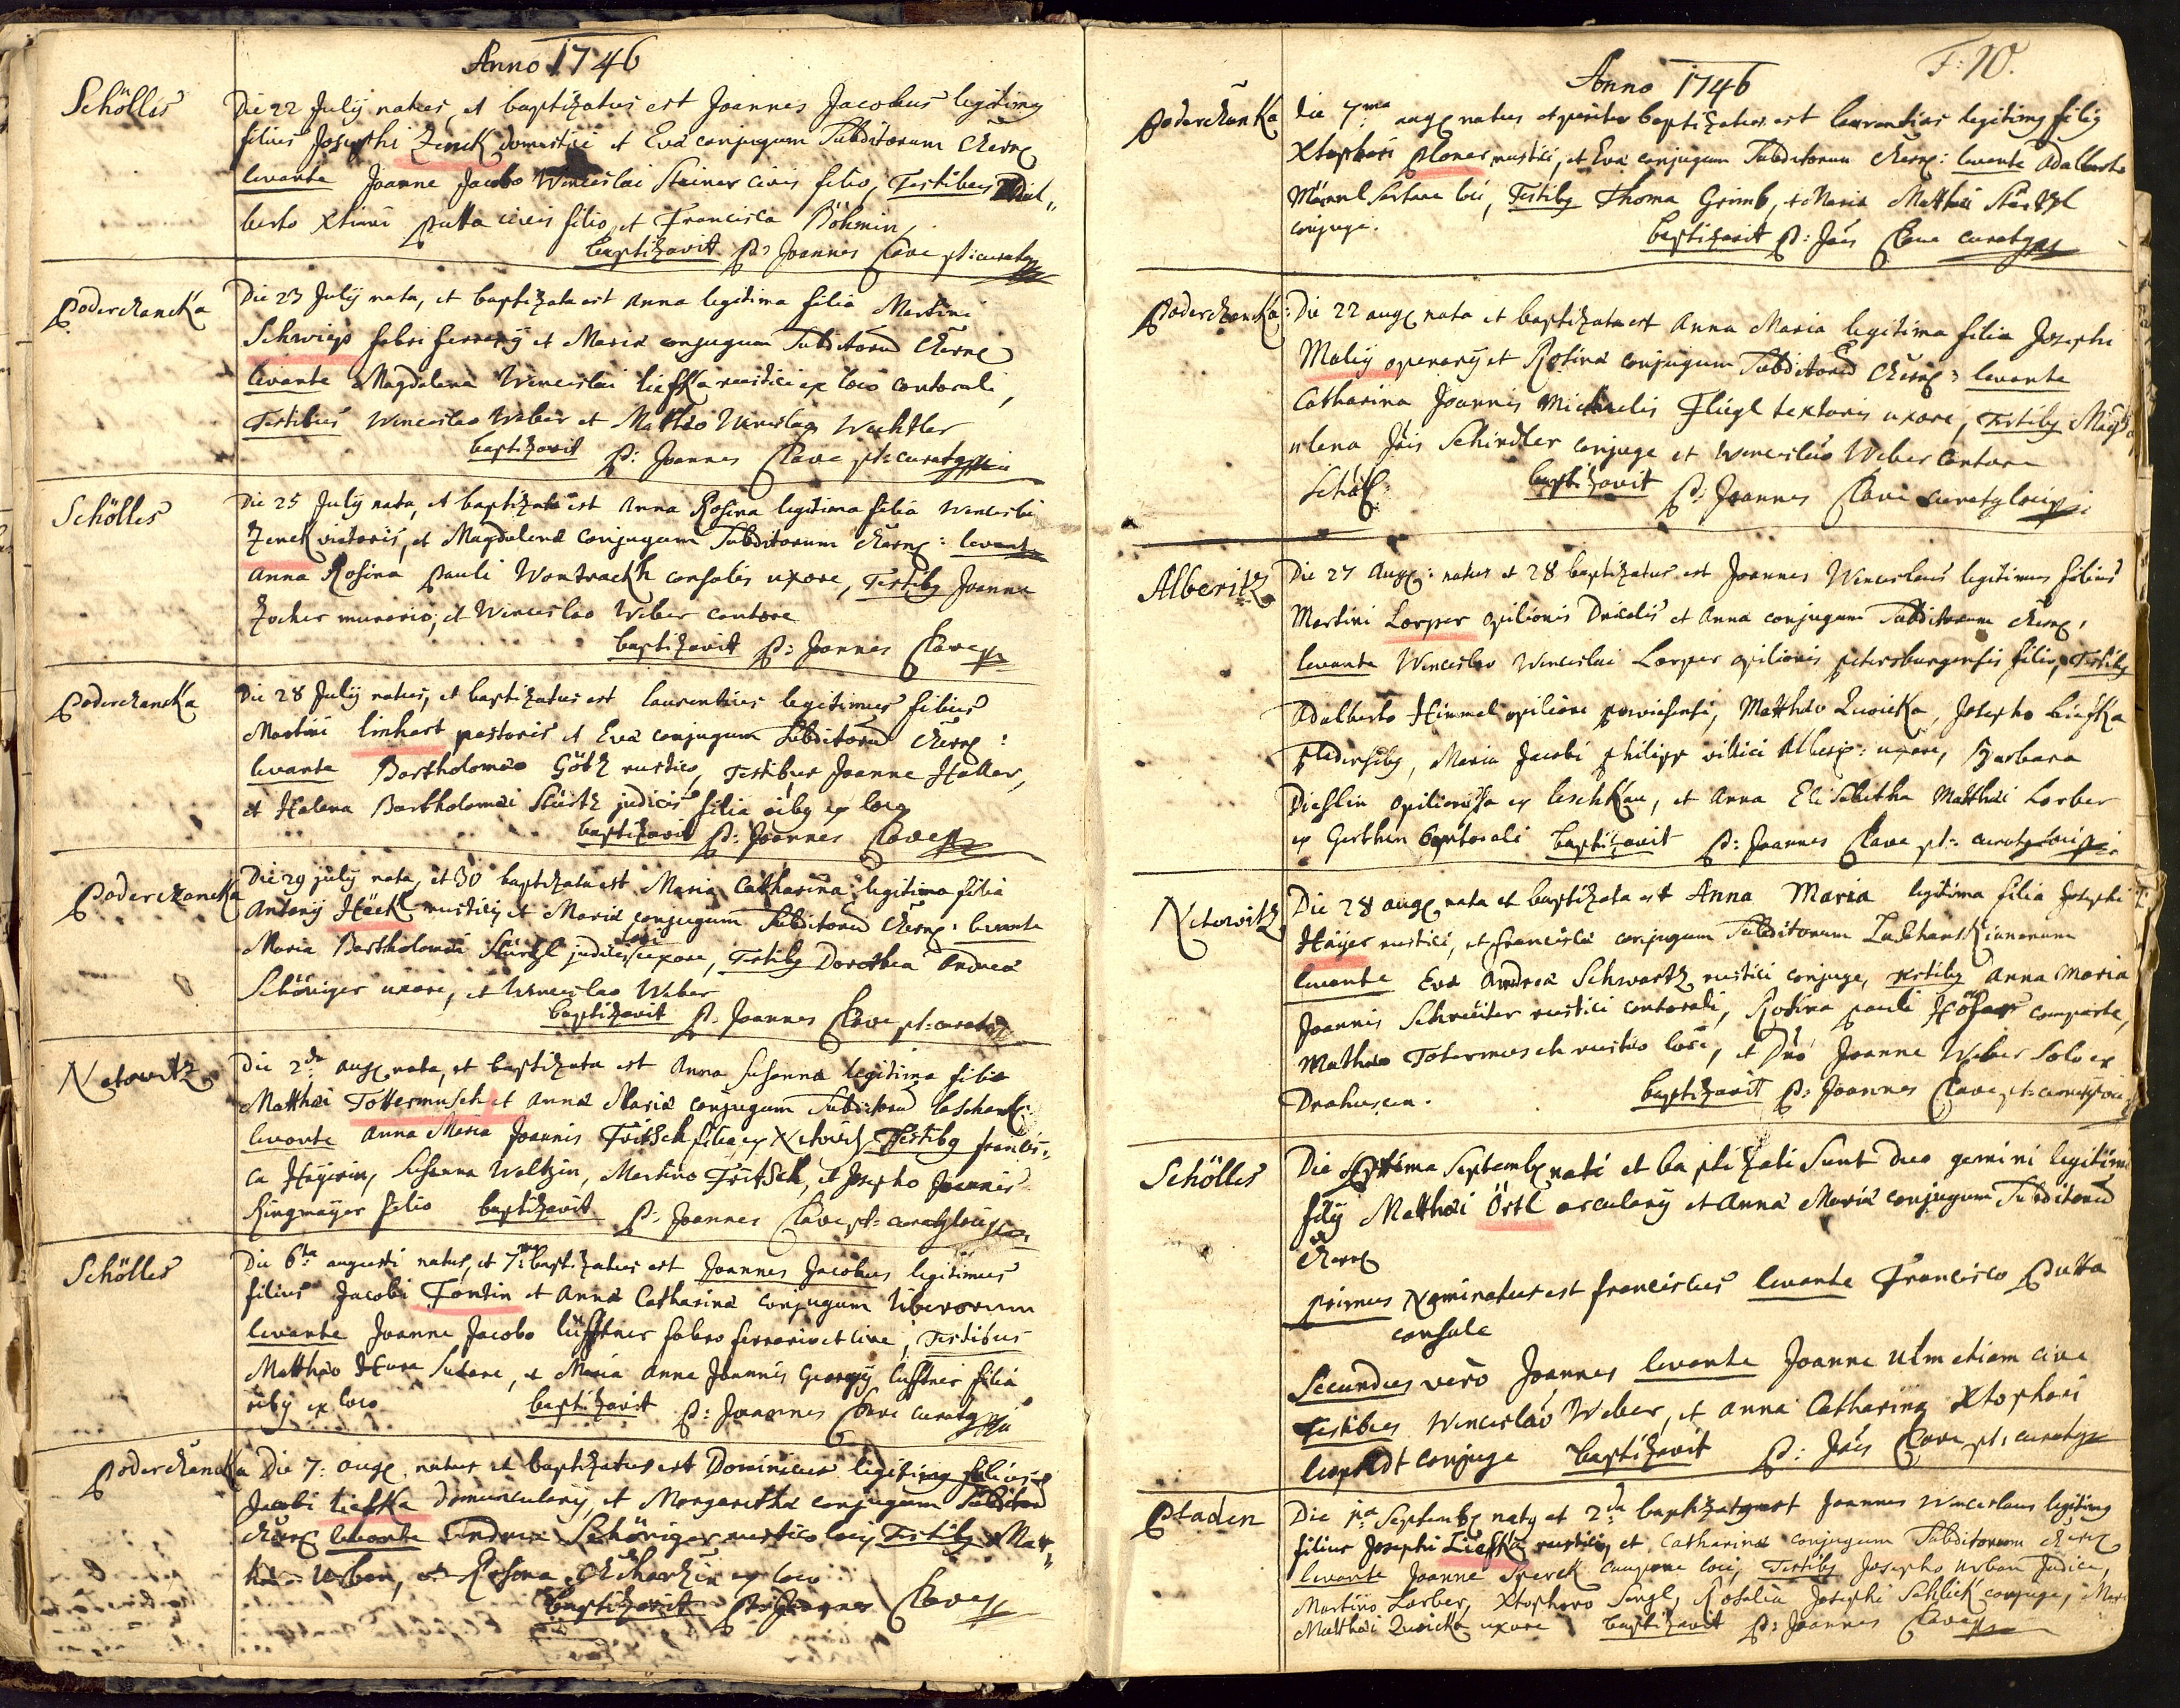 Anno 1746
Schölles
Die 22 July natus, et baptizatus est Joannes Jacobus legitimg
filius Josephi Zenck domestici et Eva conjugum Subditorum
levante Joanne Jacobo Wenceslai Steiner civis filio, Testibus Adal„
berto Putta civis filio, et Francisca Böhmin,
baptizavit P: Joannes Clave pt: curatg
Poderschancka
Die 23 July nata, et baptizata est Anna legitima filia Martini
Schwieß fabri ferrary et Maria conjugum Subditorum
levante Magdalena Wenceslai Liefka rustici ex loco contorali,
Testibus Wenceslao Weber et Wachtler
baptizavit P: Joannes Clave pt: curatg
Schölles
Die 25 July nata, et baptizata est Anna Rosina legitima filia Wenceslai
Zenck vietoris, et Magdalena conjugum Subditorum levante
Anna Rosina Pauli consulis uxore, Testibg Joanne
Zocher murario, et Wenceslao Weber cantore
baptizavit P: Joannes Clave
Poderschancka
Die 28 July natus, et baptizatus est Laurentius legitimus filius
Martini Linhart pastoris et Eva conjugum Subditorum
levante Bartholomæo Götz rustico, Testibus Joanne Haller,
et Helena Bartholomæi Stürtz judicis filia ex loco
baptizavit P: Joannes Clave
Poderschancka
Die 29 July nata, et 30 baptizata est Maria Catharina legitima filia
Antony Häckl rustici et Maria conjugum Subditorum levante
Maria Bartholomæi judicis loci uxore, Testibg Dorothea Andreæ
Schöniger uxore, et Wenceslao Weber
baptizavit P. Joannes Clave pt: curatg
Netowitz
Die 2da nata, et baptizata est Anna Susanna legitima filia
Matthæi Tottermusch et Anna Maria conjugum
levante Anna Maria Joannis Fritsch filia ex Testibg Francis„
ca Häyerin, Susanna Waltzin, Martino Fritsch, et Josepho Joannis
Ringmayer filio baptizavit P: Joannes Clave pt: curatg loci
Schölles
Die 6ta augusti natus, et 7ma baptizatus est Joannes Jacobus legitimus
filius Jacobi Fontin et Anna Catharina conjugum liberorum
levante Joanne Jacobo Lüfftner fabro ferrario et cive, Testibus
Matthæo Sutore, et Maria Anna Joannis Georgy Lüfftner filia
ex loco baptizavit P: Joannes Clave curatg
Poderschancka
Die 7: natus et baptizatus est Dominicus legitimg filius
Jacobi Liefka domuncularÿ, et Margaretha conjugum
levante Andrea Schöniger rustico loci Testibg Mat„
Urban, et Rosina ex loco
baptizavit P: Joannes Clave
Anno 1746
F: 10.
Die 7ma natus et pariter baptizatus est Laurentius legitimg filig
Xtophori Ploner rustici, et Eva conjugum Subditorum levante Adalberto
Männl Sartore loci, Testibg Thoma Grimb, et Maria Matthæi
conjuge. baptizavit P: Clave curatg
Poderschancka
Die 22 nata et baptizata est Anna Maria legitima filia Josephi
Maly operary et Rosina conjugum Subditorum levante
Catharina Joannis Michaelis Flügl textoris uxore, Testibg Magda
lena Schindler conjuge et Wenceslao Weber Cantore
baptizavit P: Joannes Clave curatg loci
Alberitz
Die 27 natus et 28 baptizatus est Joannes Wenceslaus legitimus filius
Martini Lorper opilionis et Anna conjugum Subditorum
levante Wenceslao Wenceslai Lorper opilionis petersburgensis filio, Testibg
Adalberto Himmel opilione, Matthæo Zwicka, Josepho Liefka
Maria Jacobi Philipp villici uxore, Barbara
ex Leschkau, et Anna Elisabetha Matthæi Lorber
ex Gerthen contorali baptizavit P: Joannes Clave pt: curatg loci
Netowitz
Die 28 nata et baptizata est Anna Maria legitima filia Josephi
Häyer rustici, et Francisca conjugum Subditorum
levante Eva Andrea Schwartz rustici conjuge, testibg Anna Maria
Joannis Schreiter rustici contorali, Rosina Pauli Höfer comparte,
Mathæo Totermusch rustico loci, et Joanne Weber
baptizavit P: Joannes Clave pt: curatg
Schölles
Die Septima nati et baptizati sunt duo gemini legitimi
filÿ Matthæi Örtl arcularÿ et Anna Maria conjugum Subditorum
primus Nominatus est Franciscus levante Francisco Putta
consule
Secundus vero Joannes levante Joanne Ulm etiam cive
Testibus Wenceslao Weber, et Anna Catharina Xtophori
Leopoldt conjuge baptizavit P: Clave pt: curatg
Pladen
Die natg et 2da baptizatg est Joannes Wenceslaus legitimg
filius Josephi Liefka rustici, et Catharina conjugum Subditorum
levante Joanne Sperck caupone loci, Testibg Josepho Urban Judice,
Martino Lorber, Xtophoro Sengl, Rosalia Josephi Schlick conjuge,
Matthæi Zwicka uxore baptizavit P: Joannes Clave